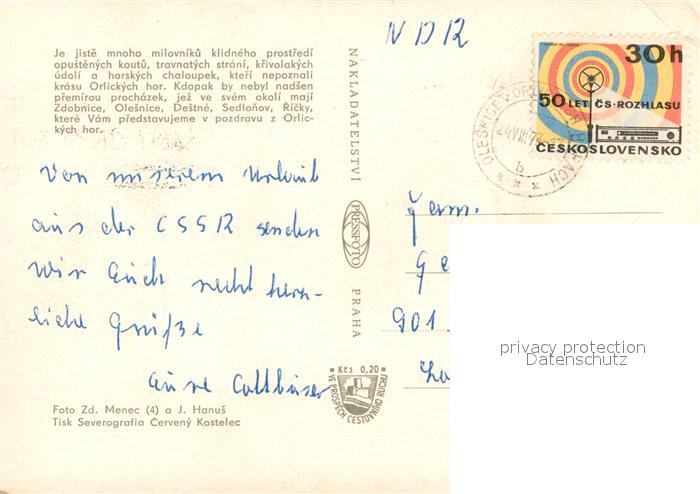 Je jistě mnoho milovníků klidného prostředí
opuštěných koutů, travnatých strání, křivolakých
údolí a horských chaloupek, kteří nepoznali
krásu Orlických hor. Kdopak by nebyl nadšen
přemírou procházek, jež ve svém okolí mají
Zdobnice, Olešnice, Deštné, Sedloňov, Říčky,
které Vám představujeme v pozdravu z Orlic-
kých hor.
Von unserem Urlaub
aus der CSSR senden
wir Euch recht herz-
liche Grüße
Eure Cottbuser
Foto Zd. Menec (4) a J. Hanuš
Tisk Severografia Červený Kostelec
NAKLADATELSTVÍ
PRESSFOTO
PRAHA
Kčs 0,20
VE PROSPĚCH CESTOVNÍHO RUCHU
NDR
30h
50 LET ČS. ROZHLASU
ČESKOSLOVENSKO
OLEŠNICE V ORL. HORÁCH
b
Fam.
Ge
901
privacy protection
Datenschutz